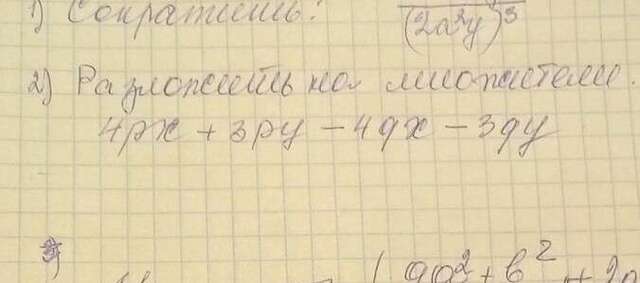 1) Сократить:
(2a²y)³
2) Разложить на множители.
4px + 3py - 4qx - 3qy
3)
9a² + b² + 2a